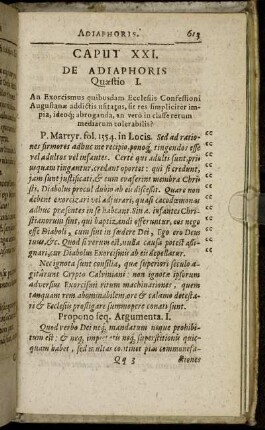 ADIAPHORIS. 613
CAPUT XXI.
DE ADIAPHORIS
Quæstio I.
An Exorcismus quibusdam Ecclesiis Confessioni
Augustanæ addictis usitatus, sit res simpliciter im-
pia, ideoq; abroganda, an verò in classe rerum
mediarum tolerabilis?
P. Martyr. fol. 1154. in Locis. Sed ad ratio-
nes firmores adhuc me recipio, penoq; tingendos esse
vel adultos vel infantes. Certe qui adulti sunt, pri-
usquam tingantur, credant oportet: qui si credunt,
jam sunt justificati, & cum evaserint membra Chri-
sti, Diabolus procul dubio ab eis discessit. Quare non
debent exorcizari vel adjurari, quasi cacodæmonas
adhuc præsentes in se habeant Sin a. infantes Chri-
stianorum sint, qui baptizandi offeruntur, eos nego
esse Diaboli, cum sint in fœdere Dei, Ego ero Deus
tuus, &c. Quod si verum est, nulla causa potest assi-
gnari, cur Diabolus Exorcismis ab eis depellatur.
Nec ignota sunt consilia, quæ superiori seculo a-
gitârunt Crypto Calviniani: non ignotæ ipsorum
adversus Exorcismi ritum machinationes, quem
tanquam rem abominabilem ore & calamo detesta-
ri & Ecclesiis profligare summopere conati sunt.
Propono seq. Argumenta. I.
Quod verbo Dei neq; mandatum neque prohibi-
tum est: & neq; superstitionis quic-
quam habet, sed multas continet pias commonefa-
Qq 3 ctiones